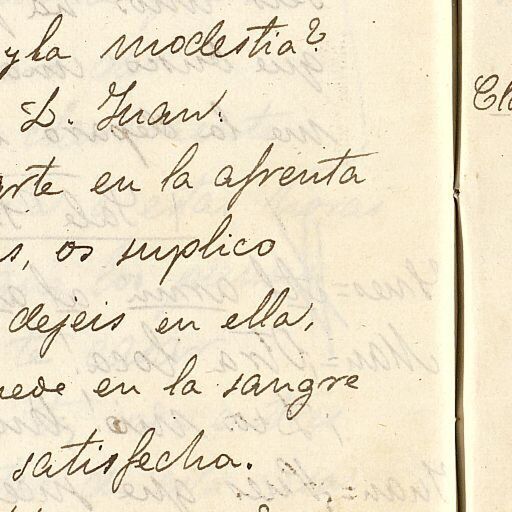 y la modestia?
D. Juan.
arte en la afrenta
s, os suplico
dejeis en ella,
en la sangre
satisfecha.